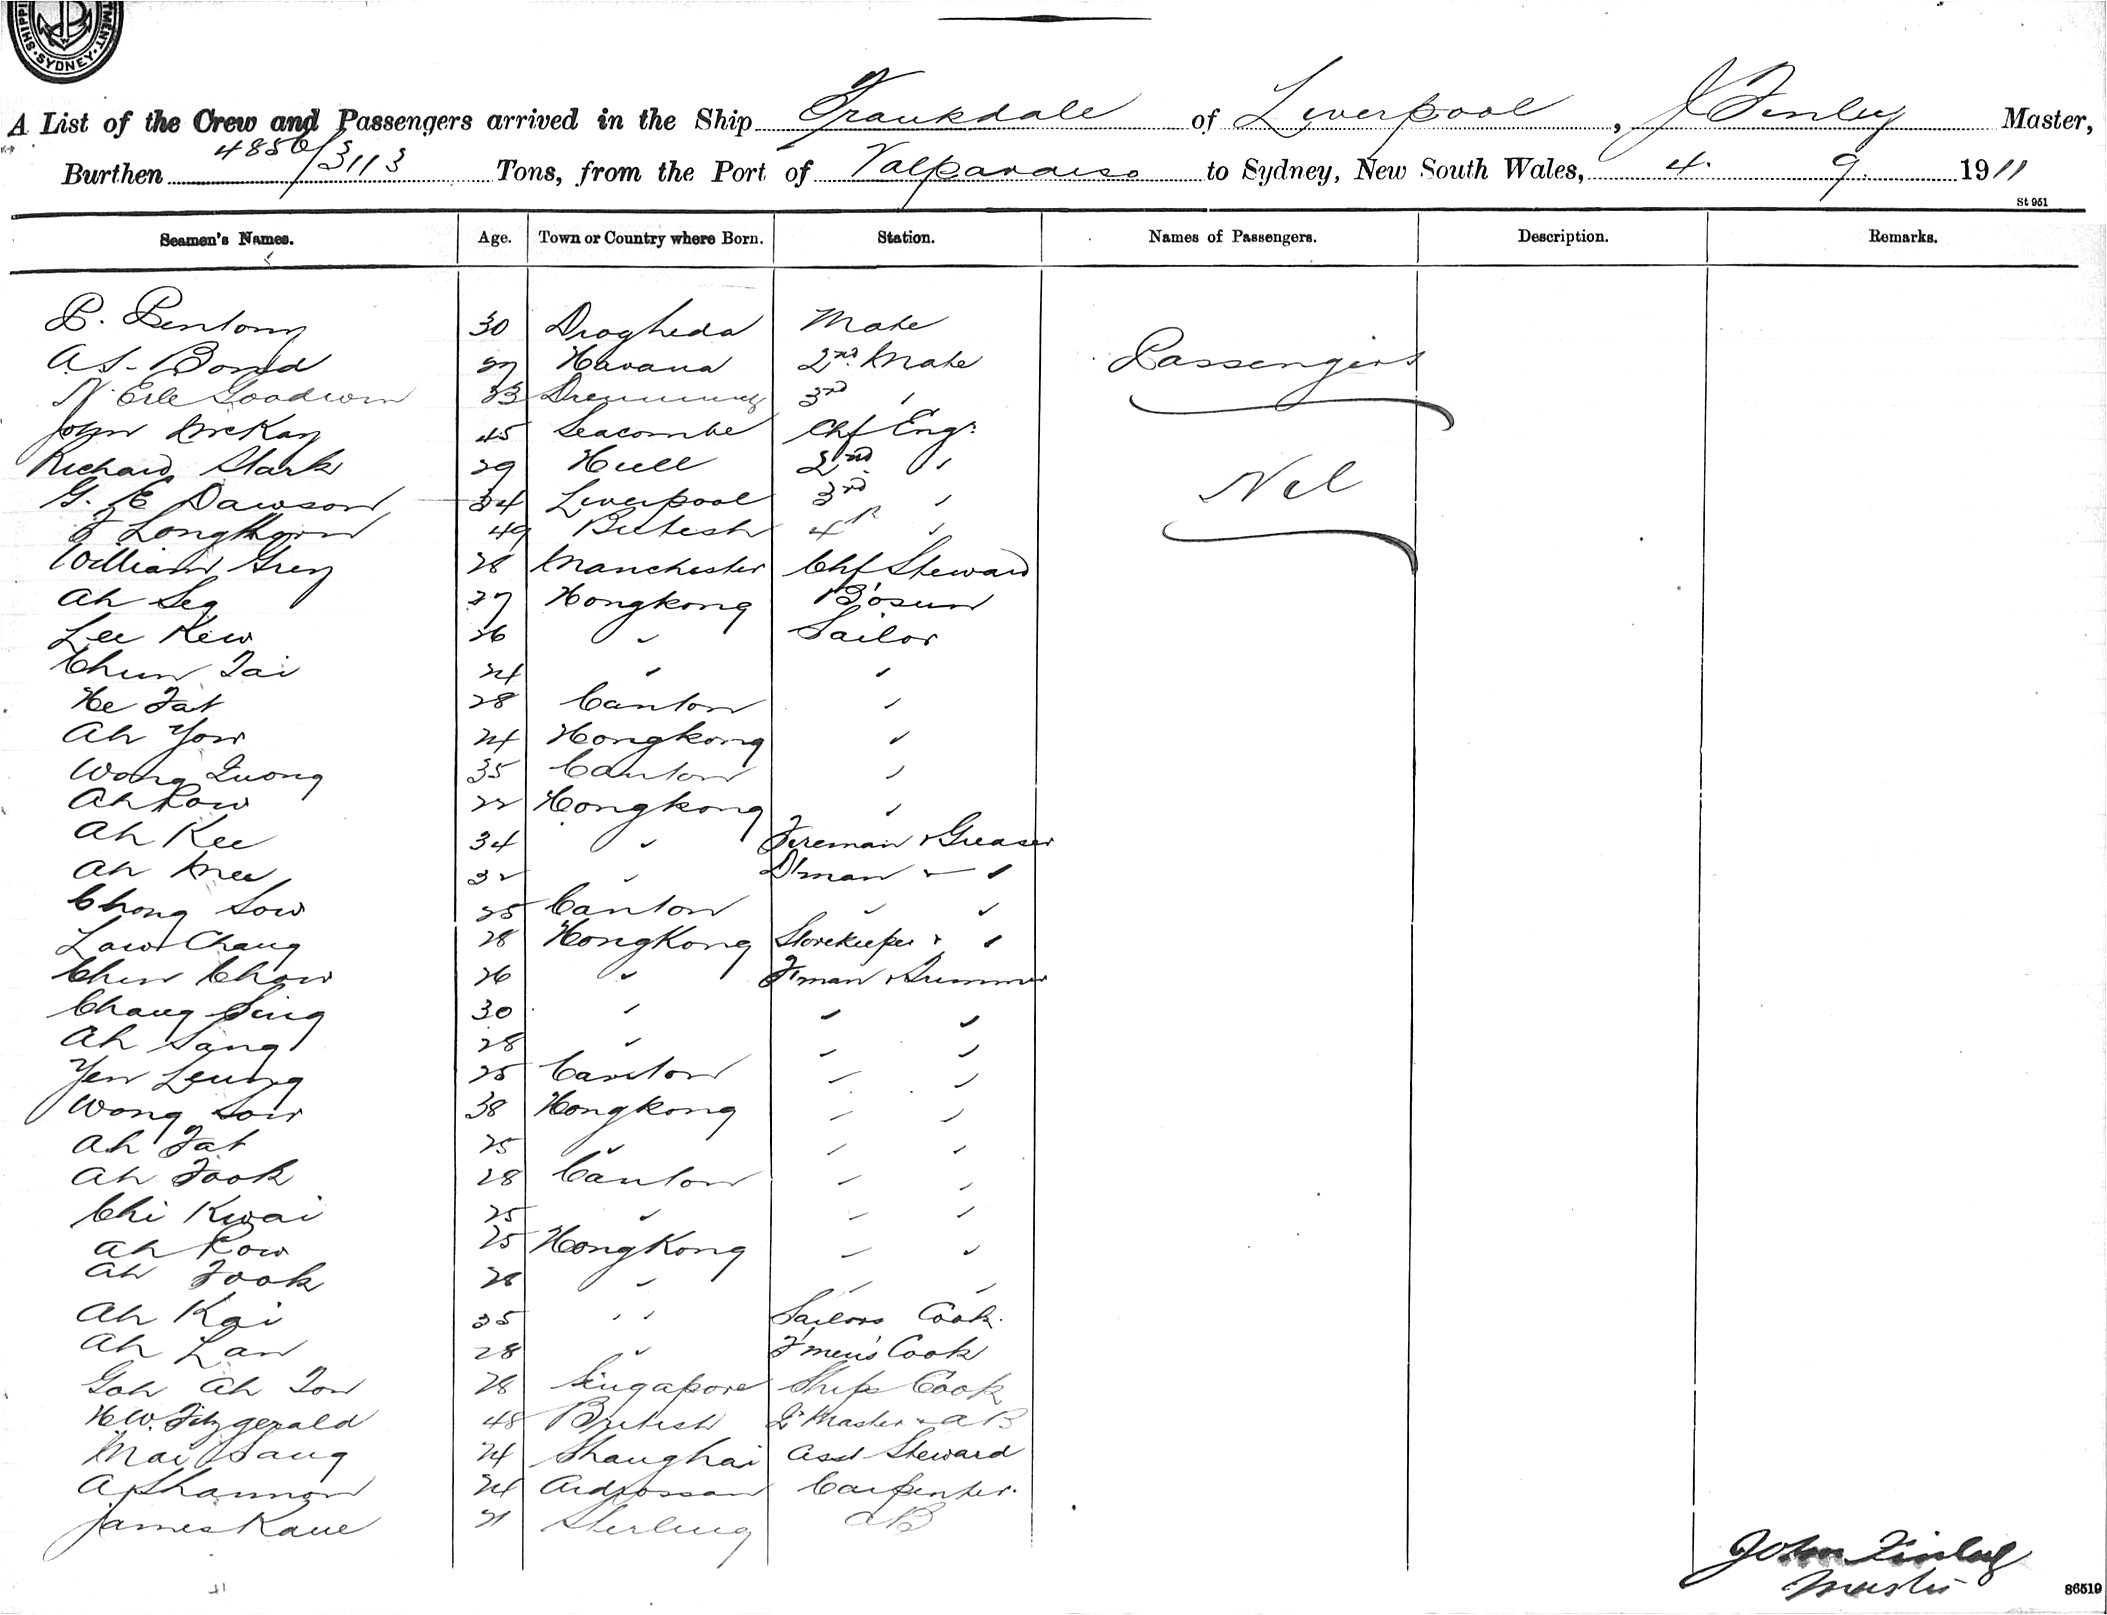 SHIPPI TMENT. SYDNEY
A List of the Crew and Passengers arrived in the Ship Frankdale of Liverpool, J Finley Master,
Burthen 4856/3113 Tons, from the Port of Valparaiso to Sydney, New South Wales, 4. 9. 1911
St 951
Seamen's Names. Age. Town or Country where Born. Station. Names of Passengers. Description. Remarks.
P. Pentony 30 Drogheda Mate
A.S. Bond 27 Havana 2nd Mate Passengers
N. Erle Goodwin 33 3rd "
John McKay 45 Seacombe Chf Engr.
Richard Stark 29 Hull 2nd "
Nil
G. E Dawson 34 Liverpool 3rd "
F Longthorn 49 British 4th "
William Grey 28 Manchester Chf Steward
Ah Seg 27 Hongkong B'osun
Lee Kew 26 " Sailor
Chun Tai 24 " "
He Fat 28 Canton "
Ah Yow 24 Hongkong "
Wong Quong 35 Canton "
Ah Row 22 Hongkong "
Ah Kee 34 " Fireman & Greaser
Ah Mee 32 " D'man & "
Chong Sow 25 Canton " "
Law Chang 28 HongKong Storekeeper & "
Chin Chow 26 " F'man & Trimmer
Chang Sing 30 " " "
Ah Sang 28 " " "
Yen Leung 25 Canton " "
Wong Sow 38 Hongkong " "
Ah Fat 25 " " "
Ah Fook 28 Canton " "
Chi Kwai 25 " " "
Ah Row 25 HongKong " "
Ah Fook 28 " " "
Ah Kai 35 " " Sailors Cook.
Ah Lan 28 " F'men's Cook
Goh Ah Tow 28 Singapore Ships Cook
H.W. Fitzgerald 48 British Qr Master & AB
Mai Sang 24 Shanghai Asst Steward
A Shannon 24 Ardrossan Carpenter.
James Kane 21 Sterling AB
John Finley
Master
86519